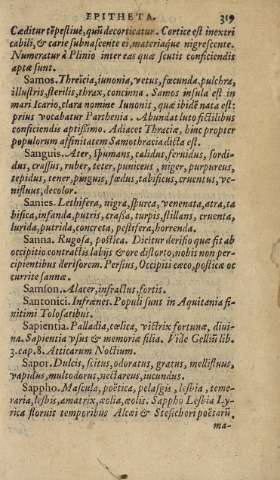 EPITHETA. 319
Cæditur tẽpestiuè, quũ decorticatur. Cortice est inextri
cabili, & carie subnascente ei, materiaque nigrescente.
Numeratur à Plinio inter eas quæ scutis conficiendis
aptæ sunt.
Samos. Threicia, iunonia, vetus, fœcunda, pulchra,
illustris, sterilis, thrax, concinna. Samos insula est in
mari Icario, clara nomine Iunonis, quæ ibidẽ nata est:
prius vocabatur Parthenia. Abundat luto fictilibus
conficiendis aptissimo. Adiacet Thraciæ, hinc propter
populorum affinitatem Samothracia dicta est.
Sanguis. Ater, spumans, calidus, feruidus, sordi-
dus, crassus, ruber, teter, puniceus, niger, purpureus,
tepidus, tener, pinguis, fœdus, tabificus, cruentus, ve-
nifluus, decolor.
Sanies. Lethifera, nigra, spurca, venenata, atra, ta
bifica, infanda, putris, crassa, turpis, stillans, cruenta,
lurida, putrida, concreta, pestifera, horrenda.
Sanna. Rugosa, postica. Dicitur derisio quæ fit ab
occipitio contractis labijs & ore distorto, nobis non per-
cipientibus derisorem. Persius, Occipiti cæco, posticæ oc
currite sannæ.
Samson. Alacer, infractus, fortis.
Santonici. Infrænes. Populi sunt in Aquitania fi-
nitimi Tolosatibus.
Sapientia. Palladia, cœlica, victrix fortunæ, diui-
na. Sapientia vsus & memoria filia. Vide Gellíu lib.
3. cap. 8. Atticarum Noctium.
Sapor. Dulcis, scitus, odoratus, gratus, mellifluus,
vapidus, multodorus, nectareus, iucundus.
Sappho. Mascula, poëtica, pelasgis, lesbia, teme-
raria, lesbis, amatrix, æolia, æolis. Sappho Lesbia Ly-
rica floruit temporibus Alcæi & Stesichori poëtarũ,
ma-